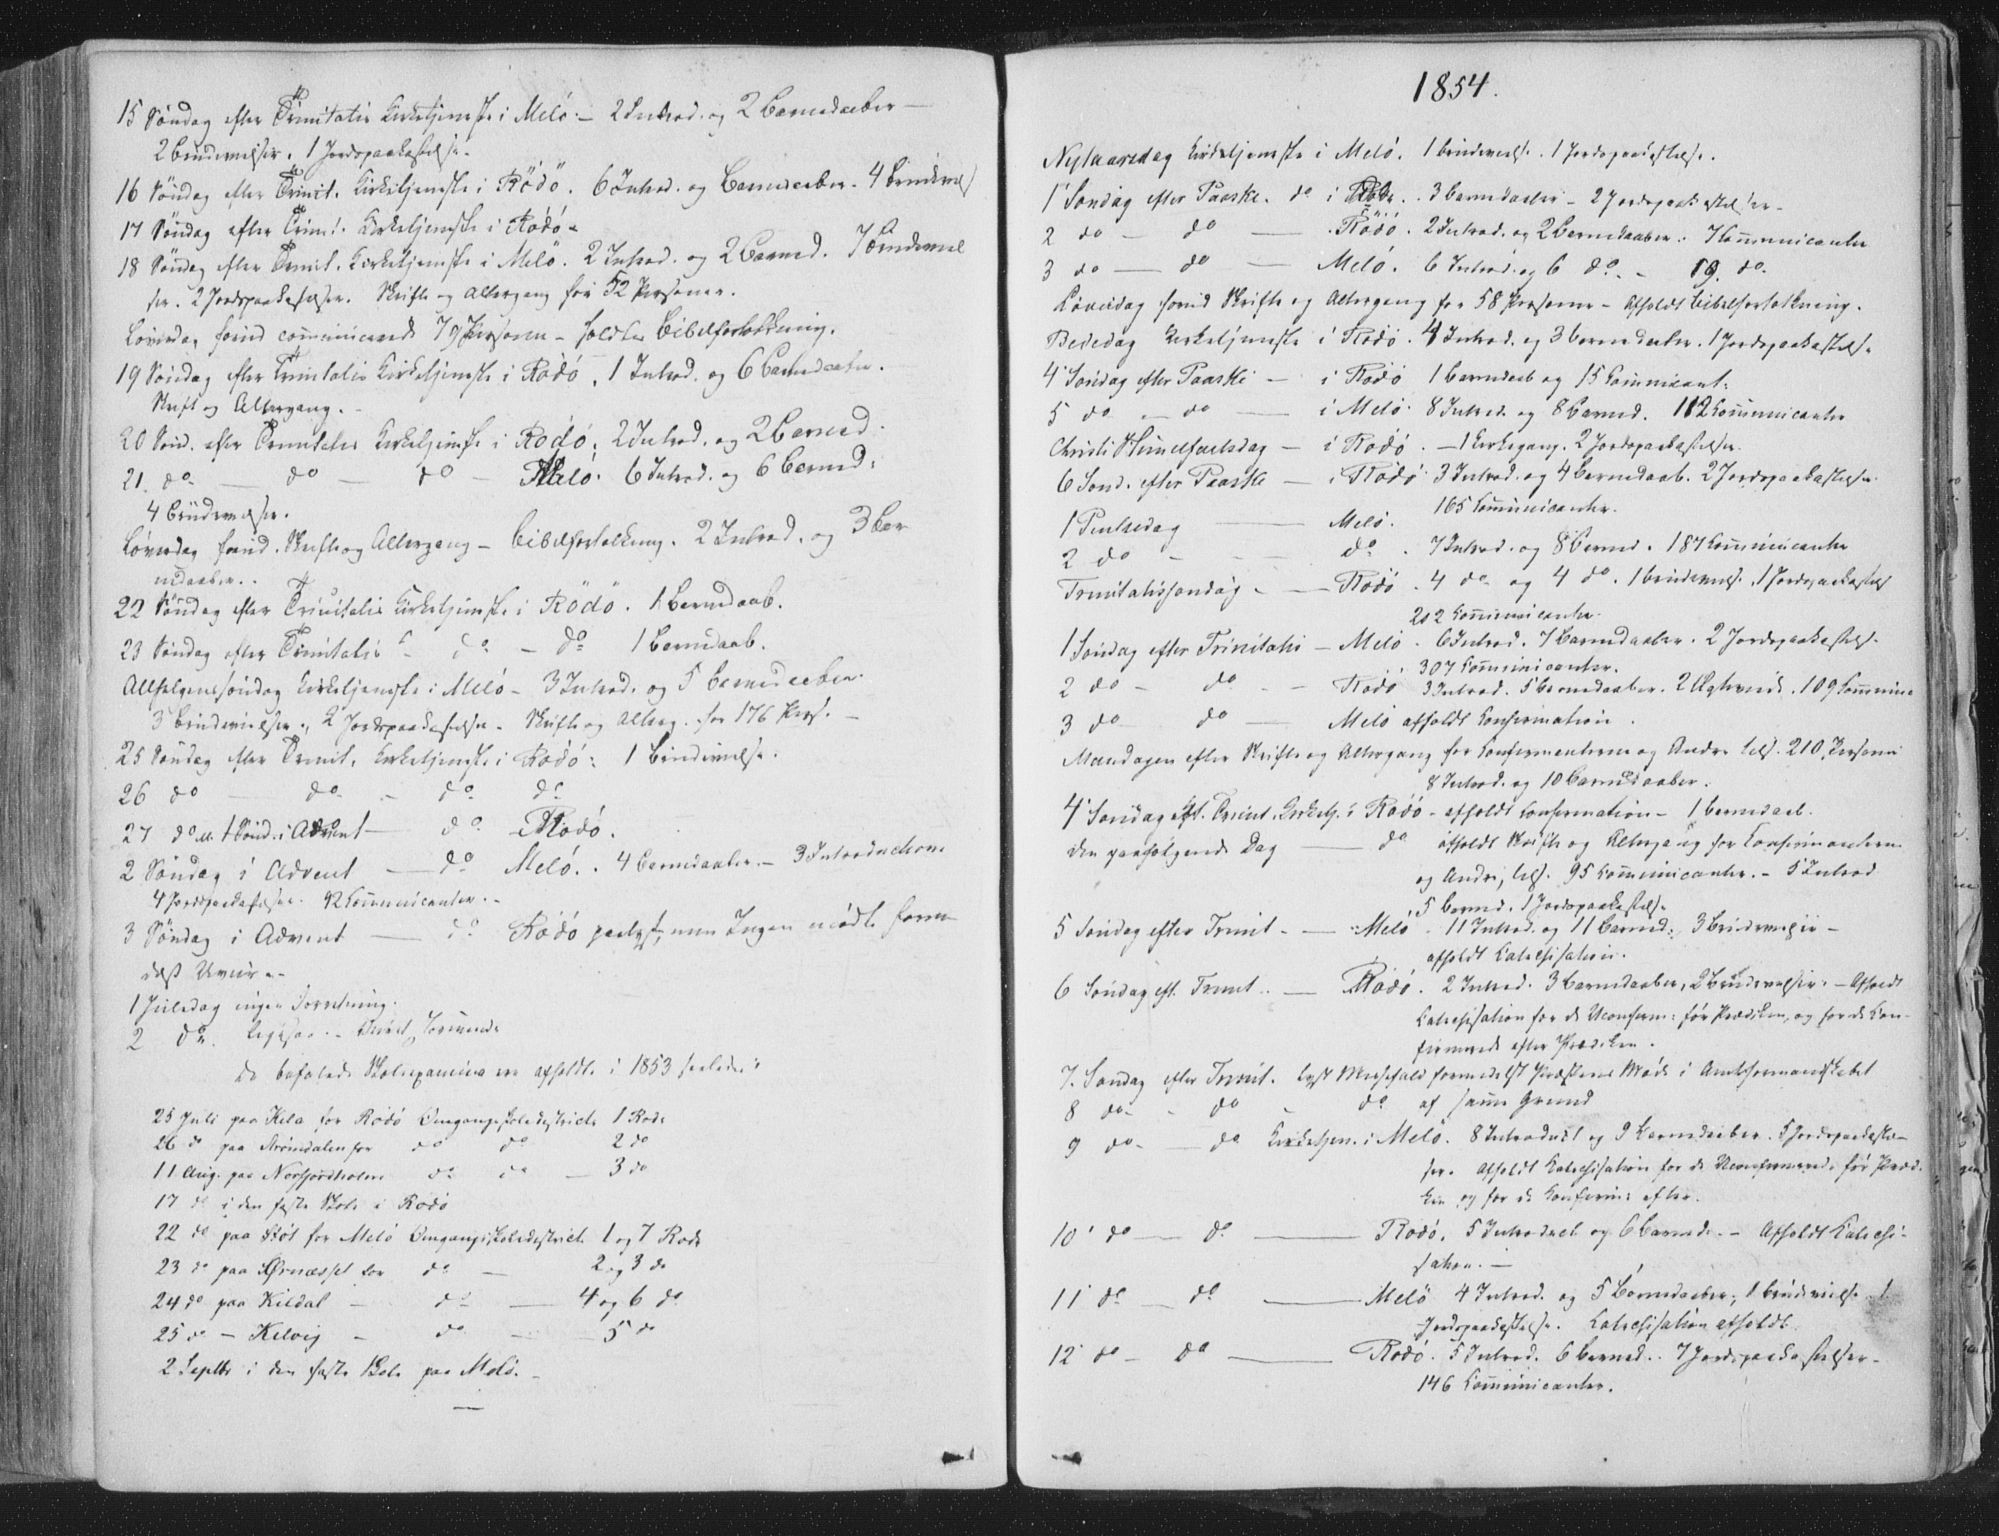 15 Søndag efter Trinitatis Kirketjeneste i Melö. – 2 Introd. og 2 Barnedaaber –
2 Trüdevielser. 1 Jordspaakastelse.
16 Søndag efter Trinit. Kirketjeneste i Rödö. 6 Introd. og Barnedaaber. 4
17 Søndag efter Trinit. Kirketjeneste i Rödö –
18 Søndag efter Trinit. Kirketjeneste i Melö. 2 Introd. og 2 Barned. 7
ser. 2 Jordspaakastelser. Skrifte og Altergang for 52 Personer.
Løverdag forud communicerede 79 Personer – holdtes Bibelfortolkning.
19 Søndag efter Trinitatis Kirketjeneste i Rödö. 1 Introd. og 6 Barnedaaber.
Skrift og Altergang. –
20 Sønd. efter Trinitatis Kirketjeneste i Rödö. 2 Introd. og 2 Barned.
21. do – do – do – Melö. 6 Introd. og 6 Barned.
4
Løverdag forud. Skrifte og Altergang – Bibelfortolkning. 2 Introd. og 3 Bar
nedaaber.
22 Søndag efter Trinitatis Kirketjeneste i Rödö. 1 Barnedaab.
23 Søndag efter Trinitatis – do – do 1 Barnedaab.
Allehelgenssøndag Kirketjeneste i Melö – 3 Introd. og 5 Barnedaaber.
3 2 Jordspaakastelser. Skrifte og Alterg. for 176 Pers. –
25 Søndag efter Trinit. Kirketjeneste i Rödö: 1
26 do – do – do do
27 do 1 Sønd. i Advent – do – Rödö.
2 Søndag i Advent – do Melö. 4 Barnedaaber. – 3 Introductioner
4 Jordspaakastelser. 92 Communicanter. –
3 Søndag i Advent – do Rödö men Ingen mødte
Uveir. –
1 Juledag ingen Forretning.
2 do. ligesaa. –
De befalede Skoleexamina ere afholdte i 1853 saaledes:
25 Juli paa Kila for Rödö Omgangsskoledistricts 1 Rode
26 do paa Strömdalen for do do 2 do
11 Aug. paa Nordfjordholm do do – 3 do
17 do i den faste Skole i Rödö
22 do paa Stöt for Melö Omgangsskoledistrict 1 og 7 Rode
23 do paa Ørnæsset for do – 2 og 3 do
24 do paa Kildal – do – 4 og 6 do
25 do – Kilvig – do – 5 do
2 Septbr i den faste Skole paa Melö. –
1854.
Nytaarsdag Kirketjeneste i Melö. 1 1 Jordspaakastelse.
1 Søndag efter Paaske. do i Rödö. 3 Barnedaaber – 2 Jordspaakastelser –
2 do – do – Rödö. 2 Introd. og 2 Barnedaaber. 7 Communicanter
3 do – do – Melö. 6 Introd. og 6 do. – 19 do.
Løverdag forud Skrifte og Altergang for 58 Personer – Afholdt Bibelfortolkning.
Bededag Kirketjeneste i Rödö. 4 Introd. og 3 Barnedaaber. 1 Jordspaakastelse
4 Søndag efter Paaske – i Rödö 1 Barnedaab og 15 Communicant:
5 do – do – i Melö. 8 Introd. og 8 Barned. 112 Communicanter
Christi Himmelfartsdag – i Rödö. – 1 Kirkegang. 2 Jordspaakastelser.
6 Sønd. efter Paaske – i Rödö 3 Introd. og 4 Barnedaab. 2 Jordspaakastelser
165 Communicanter.
1 Pintsedag – Melö.
2 do – – do. 7 Introd. og 8 Barned. 187 Communicanter
Trinitatissøndag – – Rödö. 4 do og 4 do. 1 1 Jordspaakastelse
202 Communicanter.
1 Søndag efter Trinitatis – Melö. 6 Introd. 7 Barnedaaber. 2 Jordspaakastelse
307 Communicanter.
2 do – do – Rödö 3 Introd. 5 Barnedaaber. 2 109 Commun.
3 do do – Melö afholdt Confirmation.
Mandagen efter Skrifte og Altergang for Confirmanterne og Andre tils. 210 Personer
8 Introd. og 10 Barnedaaber.
4 Søndag eft. Trinit. Kirketj. i Rödö – afholdt Confirmation – 1 Barnedaab.
Den paafølgende Dag – do afholdt Skrifte og Altergang for Confirmanterne
og Andre, tils. 95 Communicanter. – 5 Introd
5 Barned. 1 Jordspaakastelse
5 Søndag efter Trinit – – Melö. 11 Introd. og 11 Barned: 3 –
afholdt Catechisation.
6 Søndag eft. Trinit. – Rödö. 2 Introd. 3 Barnedaaber, 2 – Afholdt
Catechisation for de Uconfirm: før Prædiken, og for de Con-
firmerede efter Prædiken.
7. Søndag efter Trinit. lyst Messefald formedelst Præstens Möde i Amtsformandskabet
8 do – do – do af samme Grund
9 do – do Kirketjen. i Melö. 8 Introduct og 9 Barnedaaber. 5 Jordspaakastel-
ser. Afholdt Catechisation for de Uconfirmerede før Prædi
ken og for de Confirm: efter.
10 do – do – Rödö. 5 Introduct og 6 Barned. – Afholdt Catechi-
sation. –
11 do – do – Melö 4 Introd. og 5 Barnedaaber, 1 1
Jordspaakastelse. Catechisation afholdt.
12 do – do – Rödö. 5 Introd. 6 Barned. 7 Jordspaakastelser –
146 Communicanter.